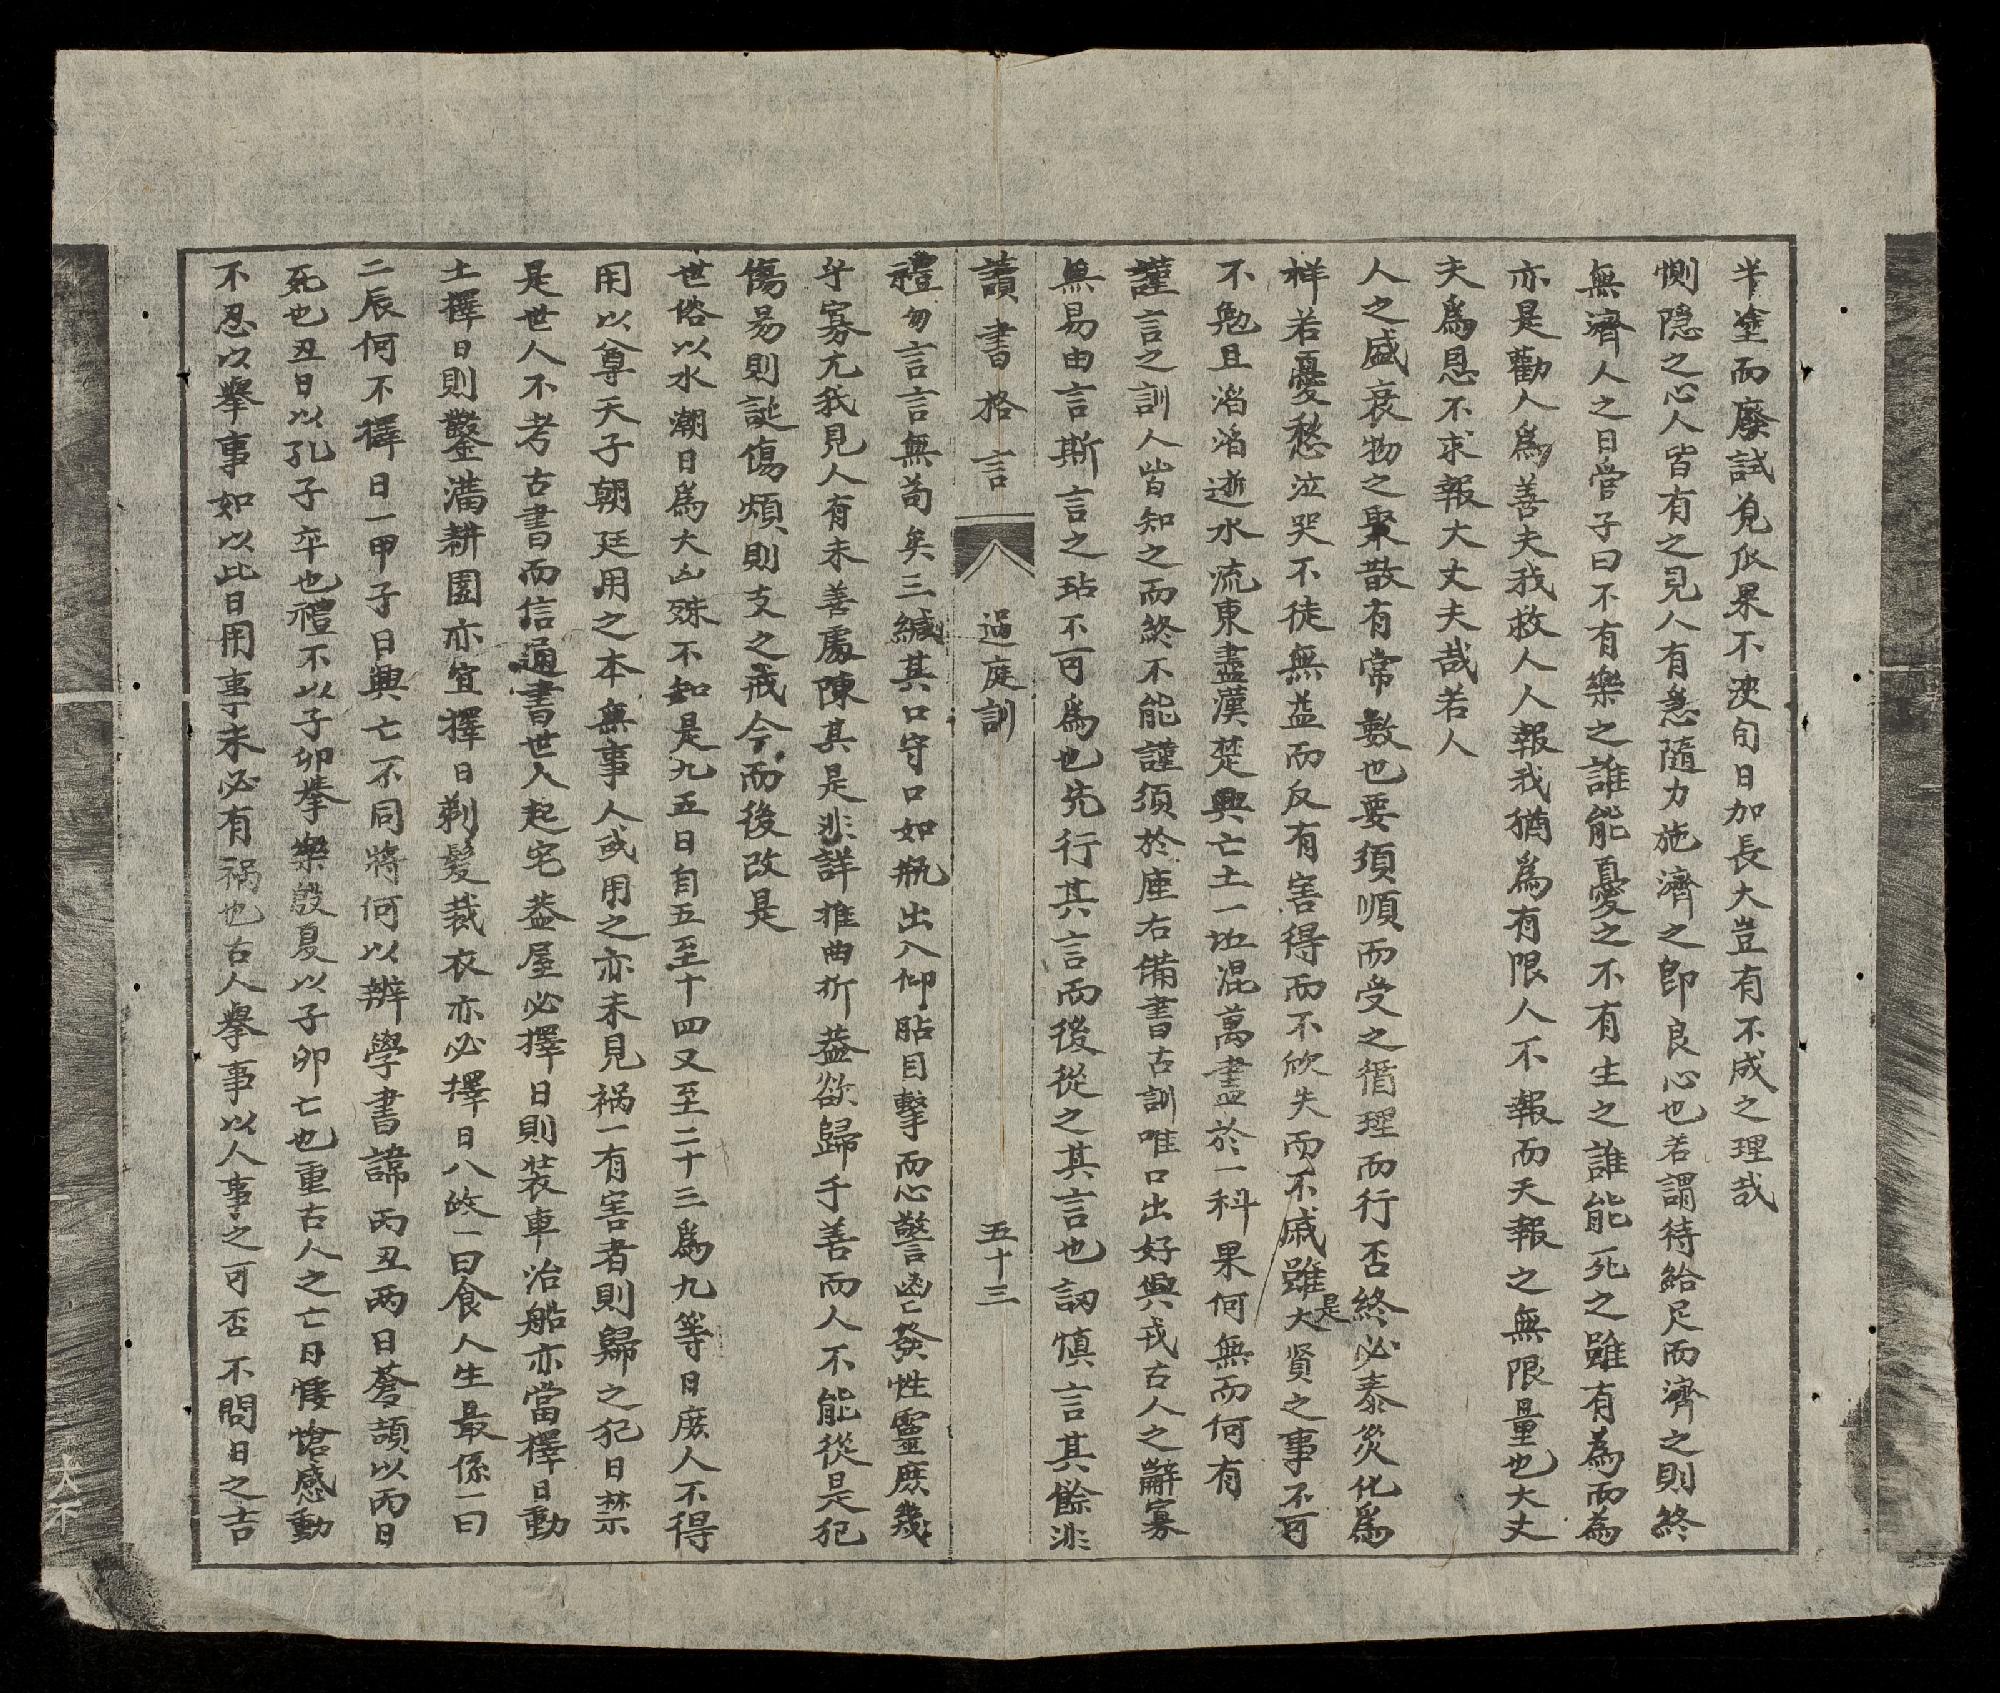 半塗而廢試見瓜果不浹旬日加長大豈有不成之理哉
惻隠之心人皆有之見人有急隨力施濟之即良心也若謂待給足而濟之則終
無濟人之日管子曰不有樂之誰能憂之不有生之誰能死之雖有為而為
亦是勸人爲善夫我救人人報我猶爲有限人不報而天報之無限量也大丈
夫爲恩不求報大丈夫哉若人
人之盛衰物之聚散有常數也要須順而受之循理而行否終必泰災化爲
祥若憂愁泣哭不徒無益而反有害得而不欣失而不戚雖是大賢之事不可
不勉且滔滔逝水流東盡漢楚興亡土一坵混萬畫於一科果何無而何有
謹言之訓人皆知之而終不能謹須於座右備書古訓唯口出好興戎古人之辭寡
無易由言斯言之玷不可爲也先行其言而後從之其言也訒慎言其餘非
讀書格言 過庭訓 五十三
禮勿言言無苟矣三緘其口守口如瓶出入仰貼目擊而心警函発性靈庶幾
乎寡尤我見人有未善處陳其是非詳推曲折葢欲歸于善而人不能從是犯
傷昜則誕傷煩則支之戒今而後改是
世俗以水潮日爲大凶殊不知是九五日自五至十四又至二十三爲九等日庶人不得
用以尊天子朝廷用之本無事人或用之亦未見禍一有害者則歸之犯日禁
是世人不考古書而信通書世人起宅葢屋必擇日則裝車治船亦當擇日動
土擇日則鑿溝耕園亦宜擇日剃髮裁衣亦必擇日八政一曰食人生最係一曰
二辰何不擇日一甲子日興亡不同將何以辨學書諱丙丑两日蒼頡以丙日
死也丑日以孔子卒也禮不以子卯擧樂殷夏以子卯亡也重古人之亡日悽愴感動
不忍以擧事如以此日用事未必有禍也古人擧事以人事之可否不問日之吉